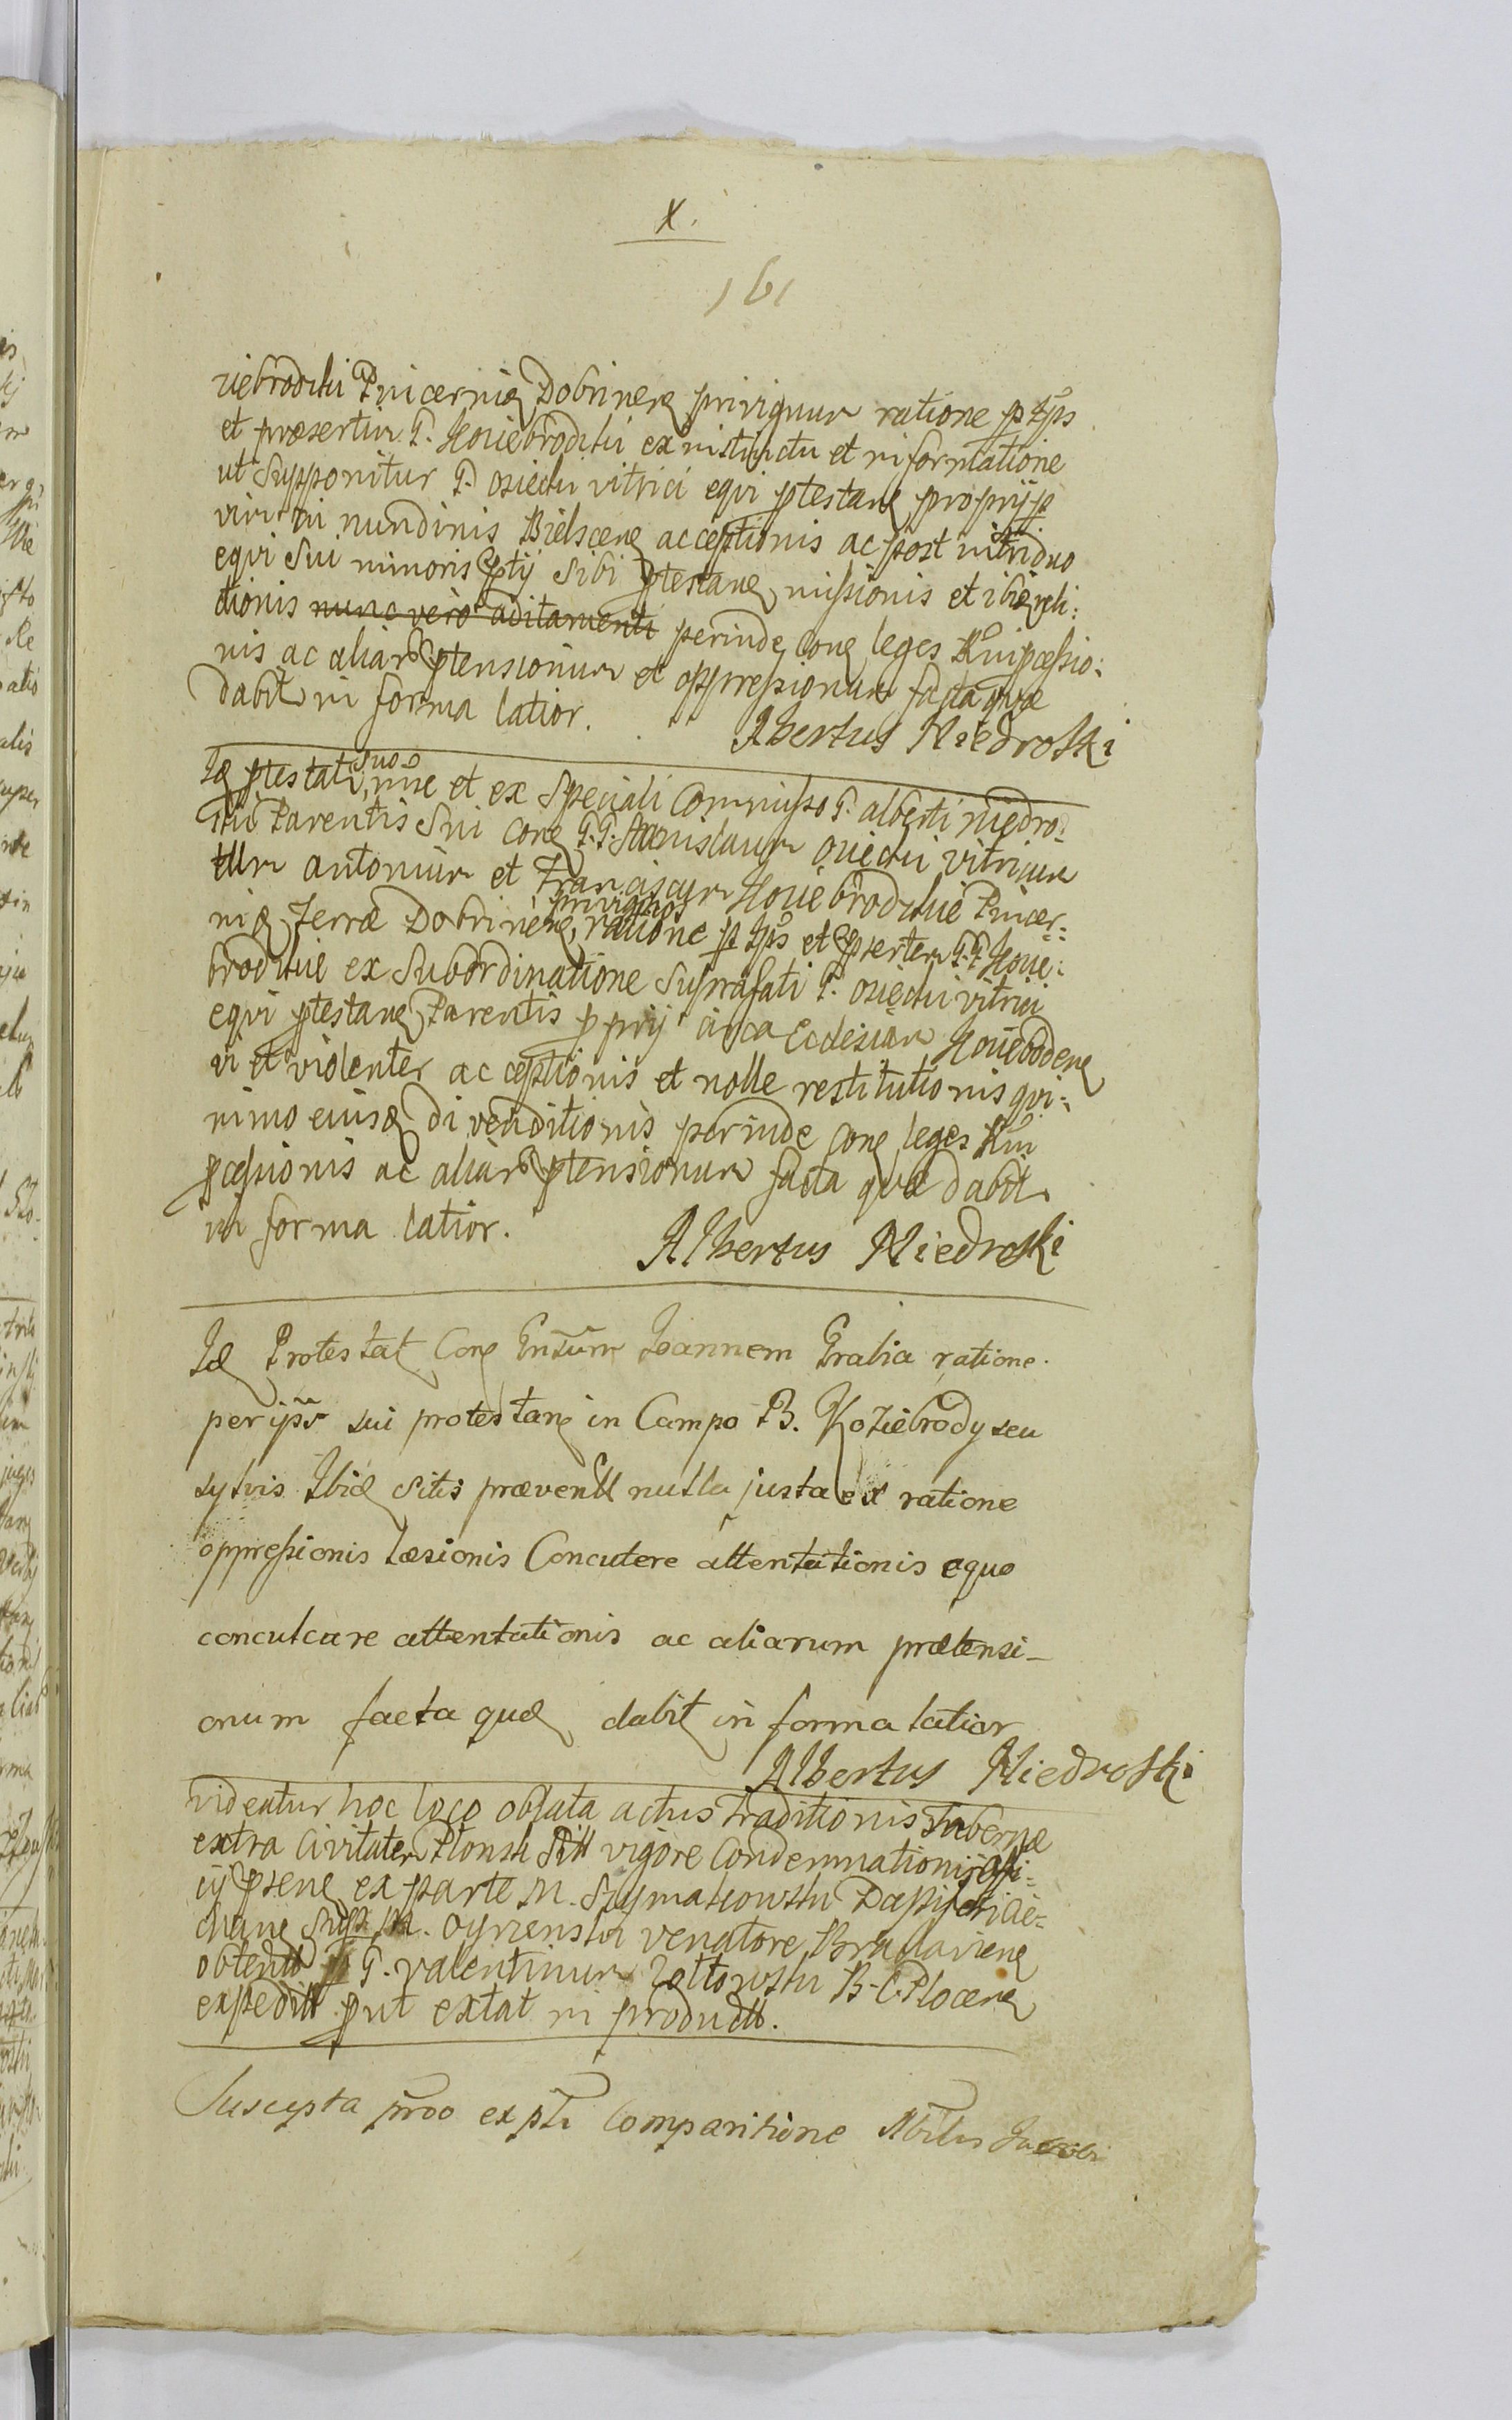 X.
161
ziebrodzki Pincernię Dobrinen privignum ratione p ips
et præsertim G. Koziebrodzki ex instinctu et informatione
ut supponitur G. osiecki vitrici eqvi ptestan proprij p
vim in nundinis Bielscen acceptionis ac post intriduo
eqvi sui minoris ptij sibi ptestan missionis et ibid reli:
ctionis nunc vero aditamenti perinde con leges Rni pcessio:
nis ac aliar ptensionum et oppressionum facta quæ
dabit in forma latior.
Albertus Niedroski
Id ptestat suo nne et ex speciali commisso G. alberti niedro:
ski Parentis sui con G.G. Stanislaum osiecki vitricum
tum antonium et Franciscum Koziebrodzkie Pincer:
nię Terræ Dobrinen privignos ratione p ips et psertem G.G. Kozie:
brodzkie ex subordinatione suprafati G. osiecki vitrici
eqvi ptestan Parentis pprij circa Ecclesiam Koziebroden
vi et violenter acceptionis et nolle restitutionis qvi:
nimo eiusd divenditionis perinde con leges Rni
pcessionis ac aliar ptensionum facta quæ dabit
in forma latior.
Albertus Niedroski
Id Protestat Con Gnsum Joannem Gralia ratione
per ips sui protestan in Campo B. Koziebrody seu
sylvis Ibid sitis prævent nulla justa ex ratione
oppressionis læsionis Concutere attentationis equo
conculcare attentationis ac aliarum prætensi-
onum facta quæ dabit in forma latior
Albertus Niedroski
videatur hoc loco oblata actus traditionis tabernæ
extra civitatem Plonsk sitt vigore Condemnationis offi:
ij psen ex parte M. Szymakowski Dapiferi Cie=
chan sup M. oyrzenski venatore Braclavien
obtent p G. valentinum Zottowski B. C Plocen
expeditt put extat in productt.
Suscepta proo expti Comparitione Nbilis Jacobi